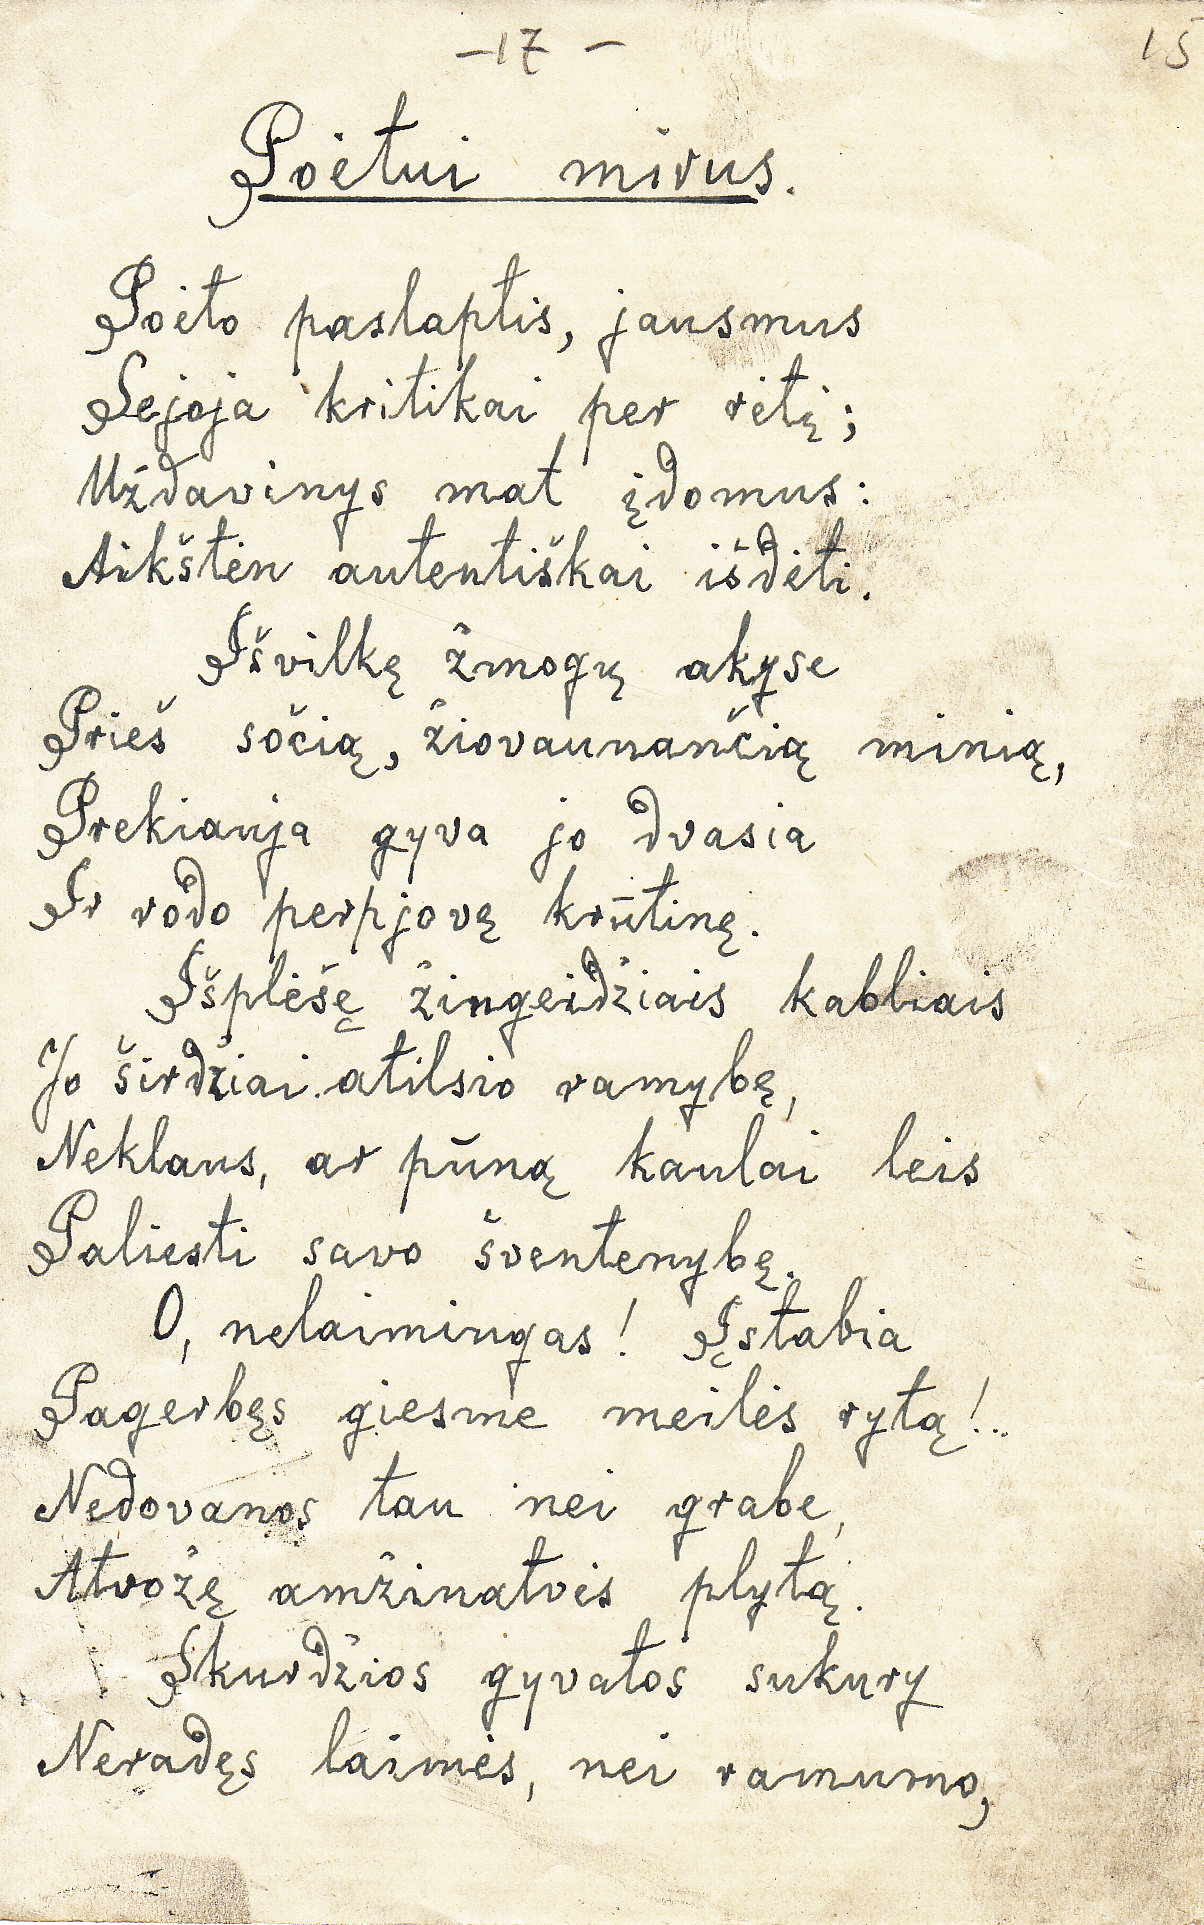 –17–
15
Poėtui mirus.
Poėto paslaptis, jausmus
Sejoja kritikai per rėtį;
Uždavinys mat įdomus:
Aikštėn autentiškai išdėti.
Išvilkę žmogų akyse
Prieš sočią, žiovaunančią minią,
Prekiauja gyva jo dvasia
Ir rodo perpjovę krūtinę.
Išplėšę žingeidžiais kabliais
Jo širdžiai atilsio ramybę,
Neklaus, ar pūną kaulai leis
Paliesti savo šventenybę.
O, nelaimingas! Įstabia
Pagerbęs giesme meilės rytą!..
Nedovanos tau nei grabe,
Atvožę amžinatvės plytą.
Skurdžios gyvatos sukury
Neradęs laimės, nei ramumo,